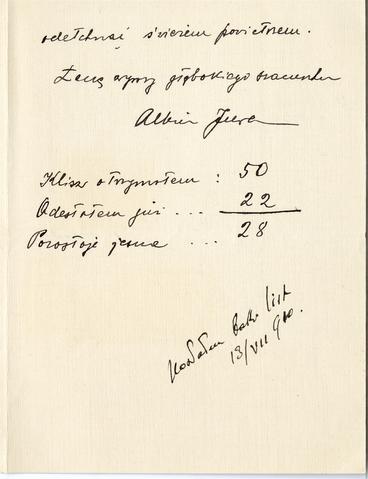 odetchnąć świeżem powietrzem.
Łączę wyrazy głębokiego szacunku
Albin Jura
Klisz otrzymałem : 50
Odesłałem już ... 22
Pozostaje jeszcze ... 28
list
13/VII 910.